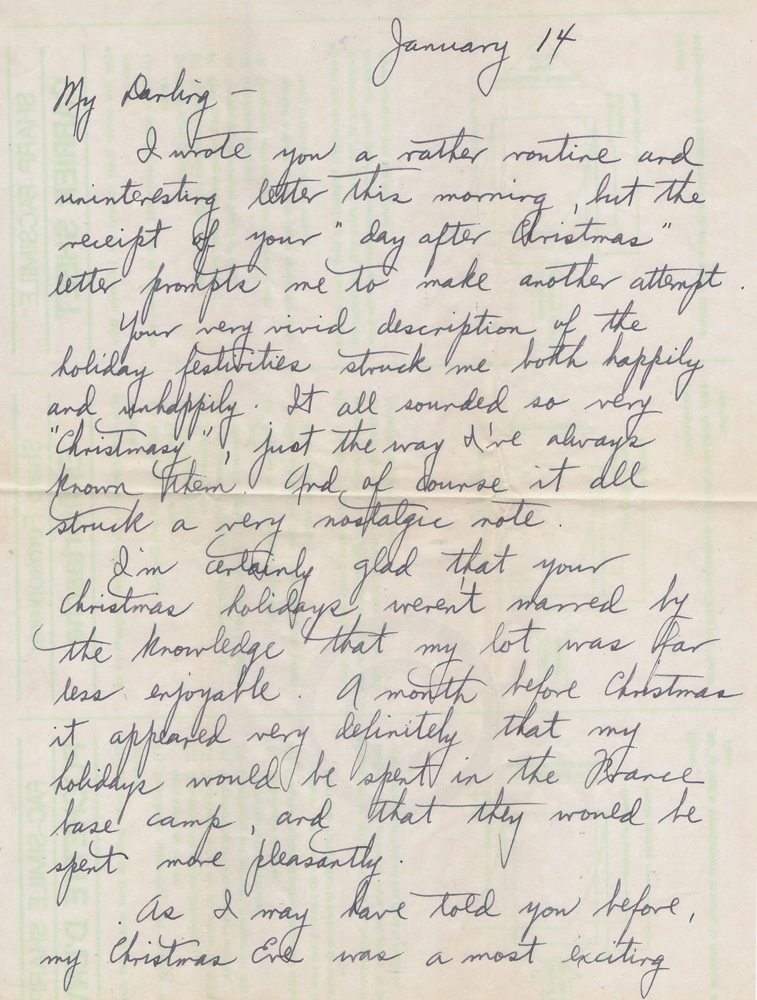 January 14
My Darling —
I wrote you a rather routine and
uninteresting letter this morning, but the
receipt of your "day after Christmas"
letter prompts me to make another attempt.
Your very vivid description of the
holiday festivities struck me both happily
and unhappily. It all sounded so very
"Christmasy", just the way I've always
known them. And of course it all
struck a very nostalgic note.
I'm certainly glad that your
Christmas holidays weren't marred by
the knowledge that my lot was far
less enjoyable. A month before Christmas
it appeared very definitely that my
holidays would be spent in the France
base camp, and that they would be
spent more pleasantly.
As I may have told you before,
my Christmas Eve was a most exciting